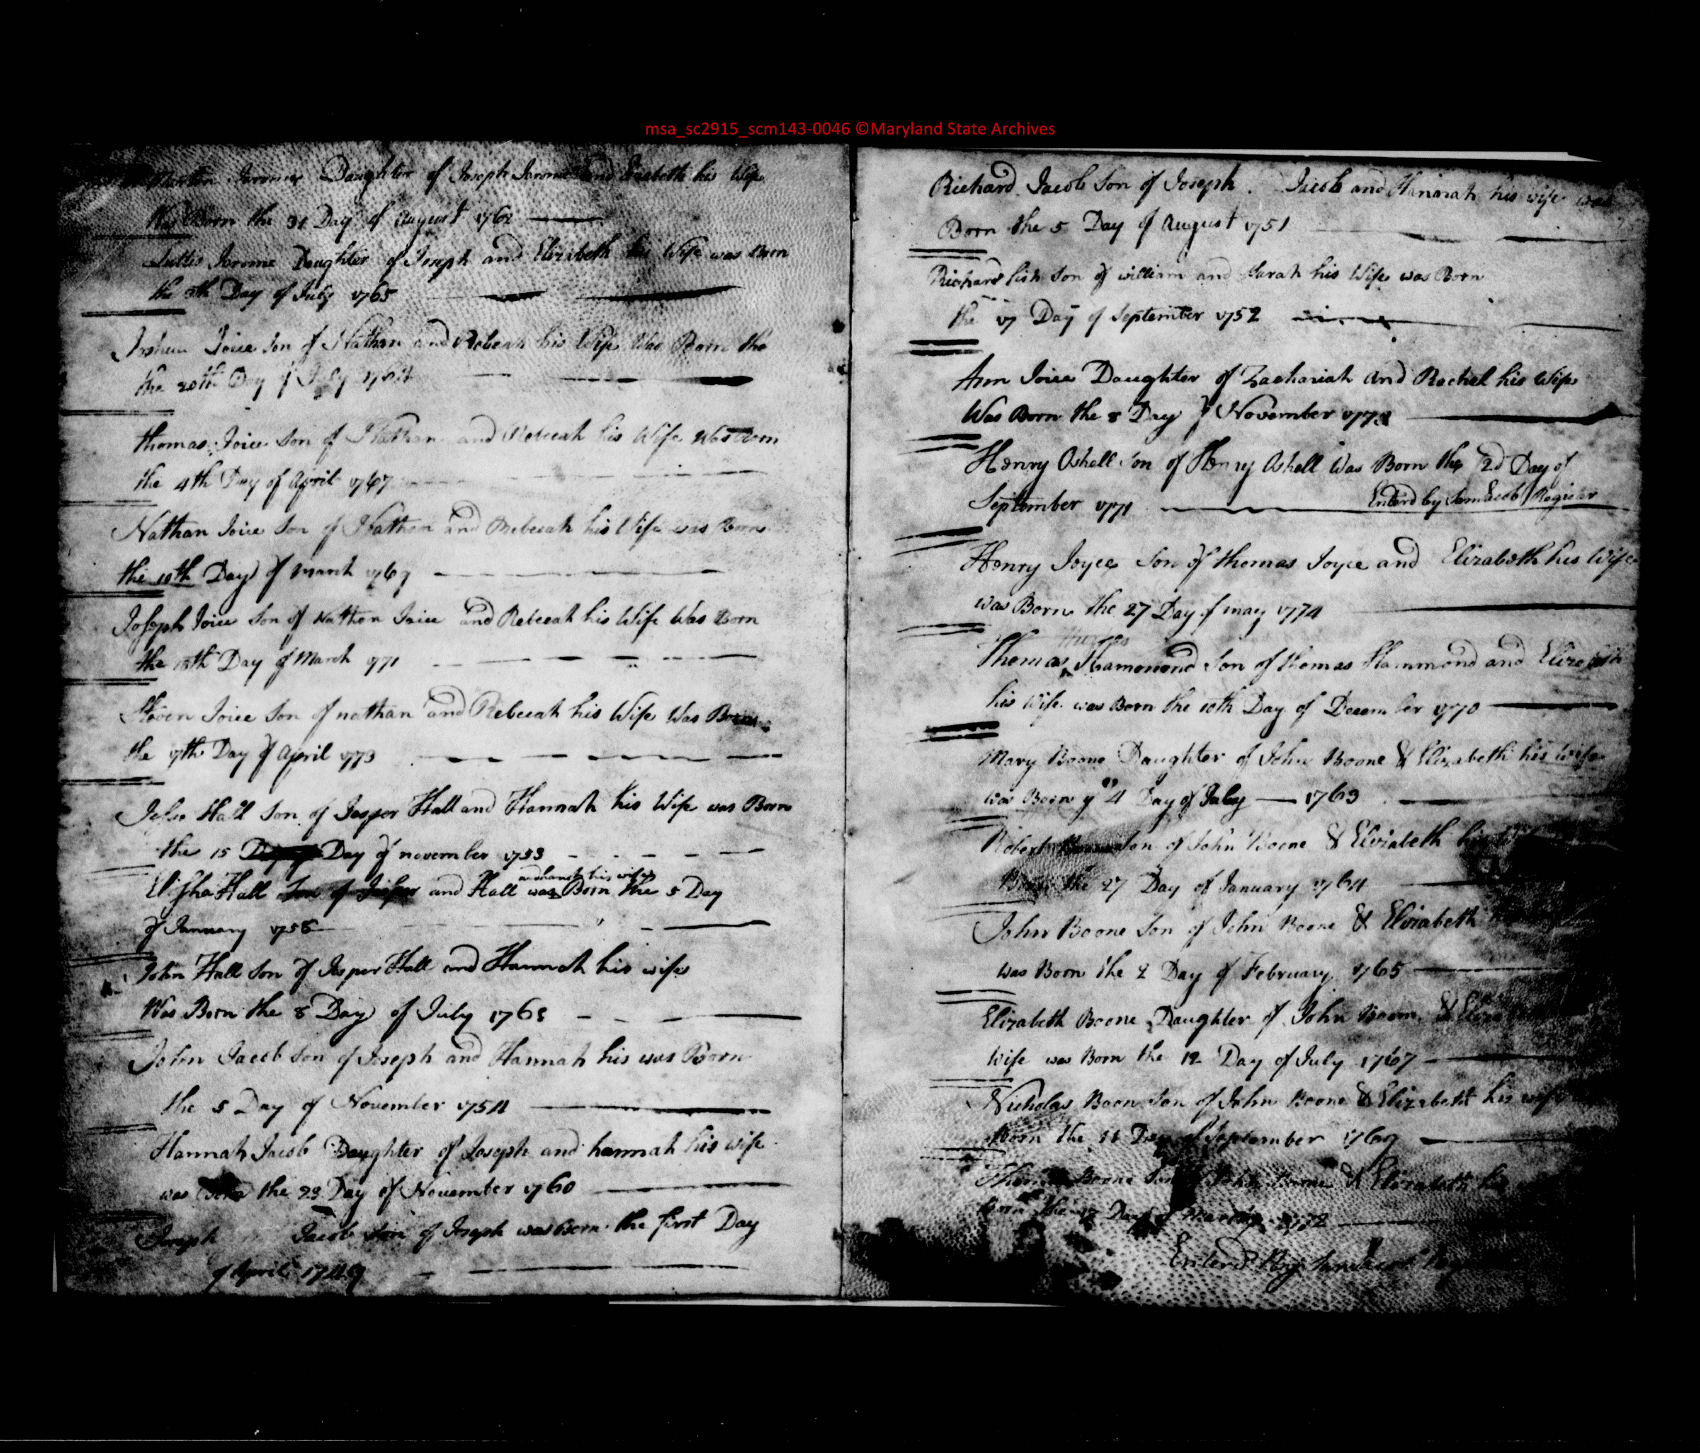 msa_sc2915_scm143-0046 ©Maryland State Archives
Daughter of Joseph Jerome and Elizabeth his Wife
Was Born the 31 Day of August 1762
Jerome Daughter of Joseph and Elizabeth his Wife was Born
the Day of July 1765
Joice Son of Nathan and Rebecah his Wife Was Born the
the 20th Day of July
thomas Joice Son of Nathan and Rebecah his Wife Was Born
the 4th Day of April 1767
Nathan Joice Son of Nathan and Rebecah his Wife was Born
the 10th Day of March 1769
Joseph Joice Son of Nathan Joice and Rebecah his Wife Was Born
the 15th Day of March 1771
Steven Joice Son of nathan and Rebecah his Wife Was Born
the 7th Day of April 1773
Hall Son of Jasper Hall and Hannah his Wife was Born
the 15 Day of november 1753
and hanah his wife
Elisha Hall and Hall was Born the 5 Day
of January 1756
John Hall Son of Jasper Hall and Hannah his wife
Was Born the 8 Day of July 1763
John Jacob Son of Joseph and Hannah his was Born
the 5 Day of November 1754
Hannah Jacob Daughter of Joseph and hannah his wife
was the 23 Day of November 1760
Joseph Jacob Son of Joseph was born the first Day
of April 1749
Richard Jacob Son of Joseph Jacob and Hannah his wife was
Born the 5 Day of August 1751
Richard fish Son of william and Sarah his Wife was Born
the 17 Day of September 1752
Ann Joice Daughter of Zachariah and Rachel his Wife
Was Born the 8 Day of November
Henry Oshell Son of Henry Oshell Was Born the 2d Day of
September 1771 Enterd by Sam Jacob Register
Henry Joyce Son of thomas Joyce and Elizabeth his Wife
was Born the 27 Day of may 1774
Thomas Hammond Son of thomas Hammond and Elizabeth
his Wife was Born the 10th Day of December 1770
Mary Boone Daughter of John Boone & Elizabeth his wife
was Born ye 4 Day of July 1763
Robert Son of John Boone & Elizabeth his
Born the 27 Day of January 1764
John Boone Son of John Boone & Elizabeth
was Born the 2 Day of February 1765
Elizabeth Boone Daughter of John Boone &
Wife was Born the 12 Day of July 1767
Nicholas Boon Son of John Boone & Elizabeth his wife
Born the Day of September 1769
Boone Son of John Boone & Elizabeth his
Born the Day of 1772
Enterd By Sam Jacob